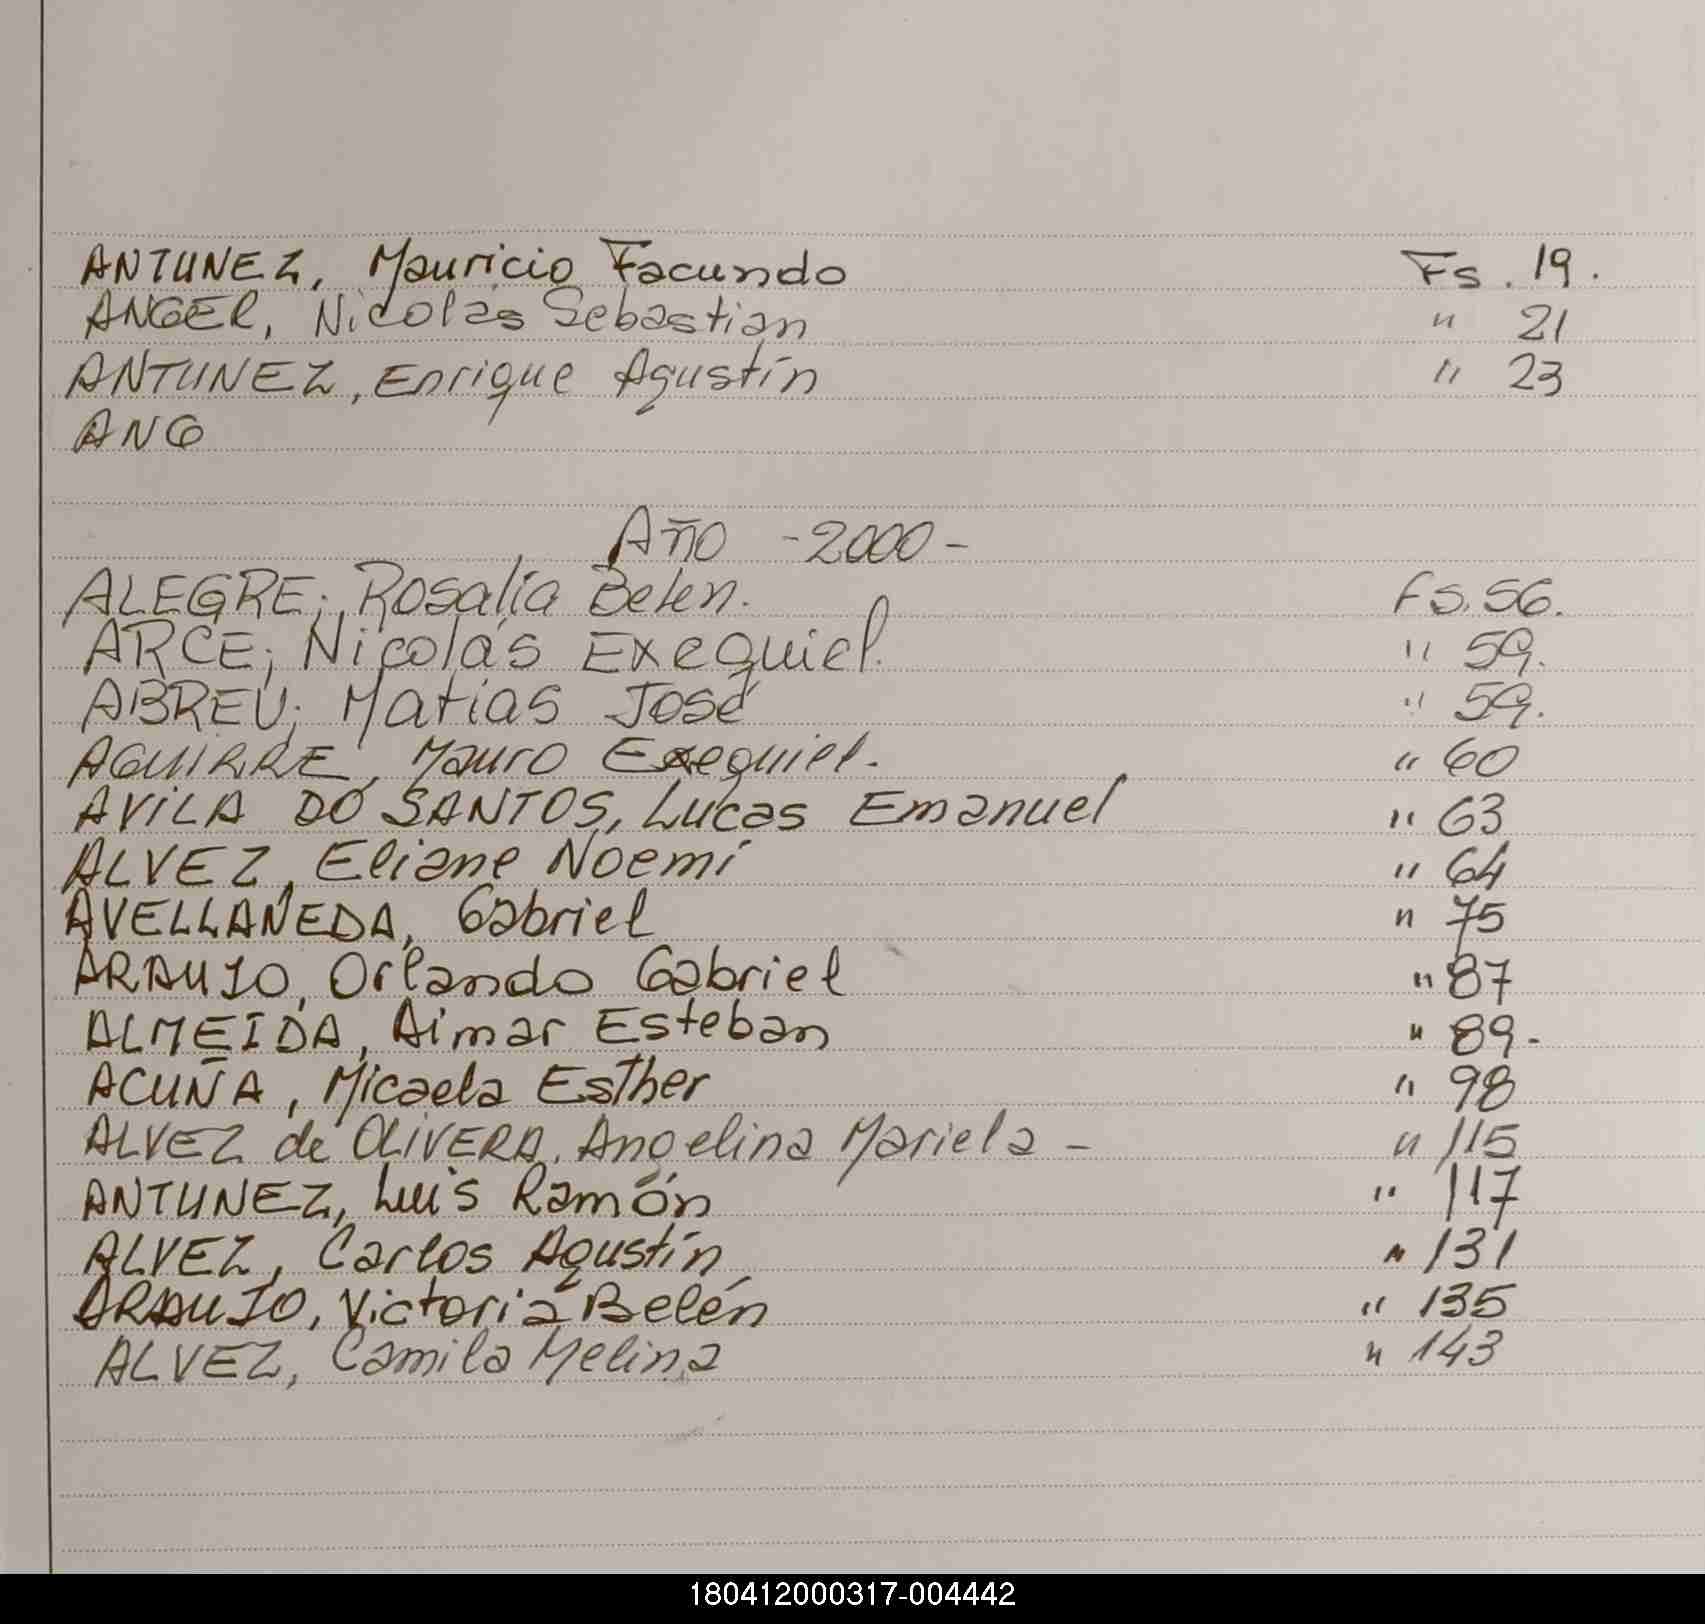 ANTUNEZ, Mauricio Facundo Fs. 19.
ANGEL, Nicolás Sebastian " 21
ANTUNEZ, Enrique Agustín " 23
ANG
Año -2000-
ALEGRE; Rosalía Belen. Fs. 56.
ARCE; Nicolás Exequiel. " 59.
ABREU; Matias José " 59.
AGUIRRE, Mauro Exequiel. " 60
AVILA DO SANTOS, Lucas Emanuel " 63
ALVEZ, Eliane Noemí " 64
AVELLANEDA, Gabriel " 75
ARAUJO, Orlando Gabriel " 87
ALMEIDA, Aimar Esteban " 89.
ACUÑA, Micaela Esther " 98
ALVEZ de OLIVERA, Angelina Mariela - " 115
ANTUNEZ, Luis Ramón " 117
ALVEZ, Carlos Agustín " 131
ARAUJO, Victoria Belén " 135
ALVEZ, Camila Melina " 143
180412000317-004442